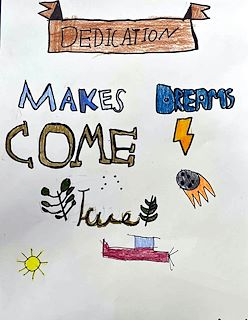 DEDICATION
MAKES DREAMS
COME
True